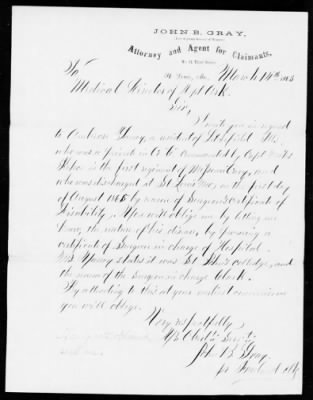 JOHN B. GRAY,
Attorney and Agent for Claimants,
St. Louis, Mo. March 14th
To
Medical Director of Dpt Ark.
Sir,
I write you in regard
to Ambrose Young, a
who was a private in Co commanded by Capt
is the first regiment of Missouri Cavy, and
who was discharged at St Louis Mo, on the first day
of August 1865 by reason of Surgeon's certificate of
Disability. You will oblige me by letting me
know, the nature of his disease, by procuring a
certificate of Surgeon in charge of Hospital.
Mr Young states it was St John's College, and
the name of the Surgeon in charge Clark.
By attending to this at your earliest convenience
you will oblige.
Very respectfully
Your Obdt. Servt
John B. Gray